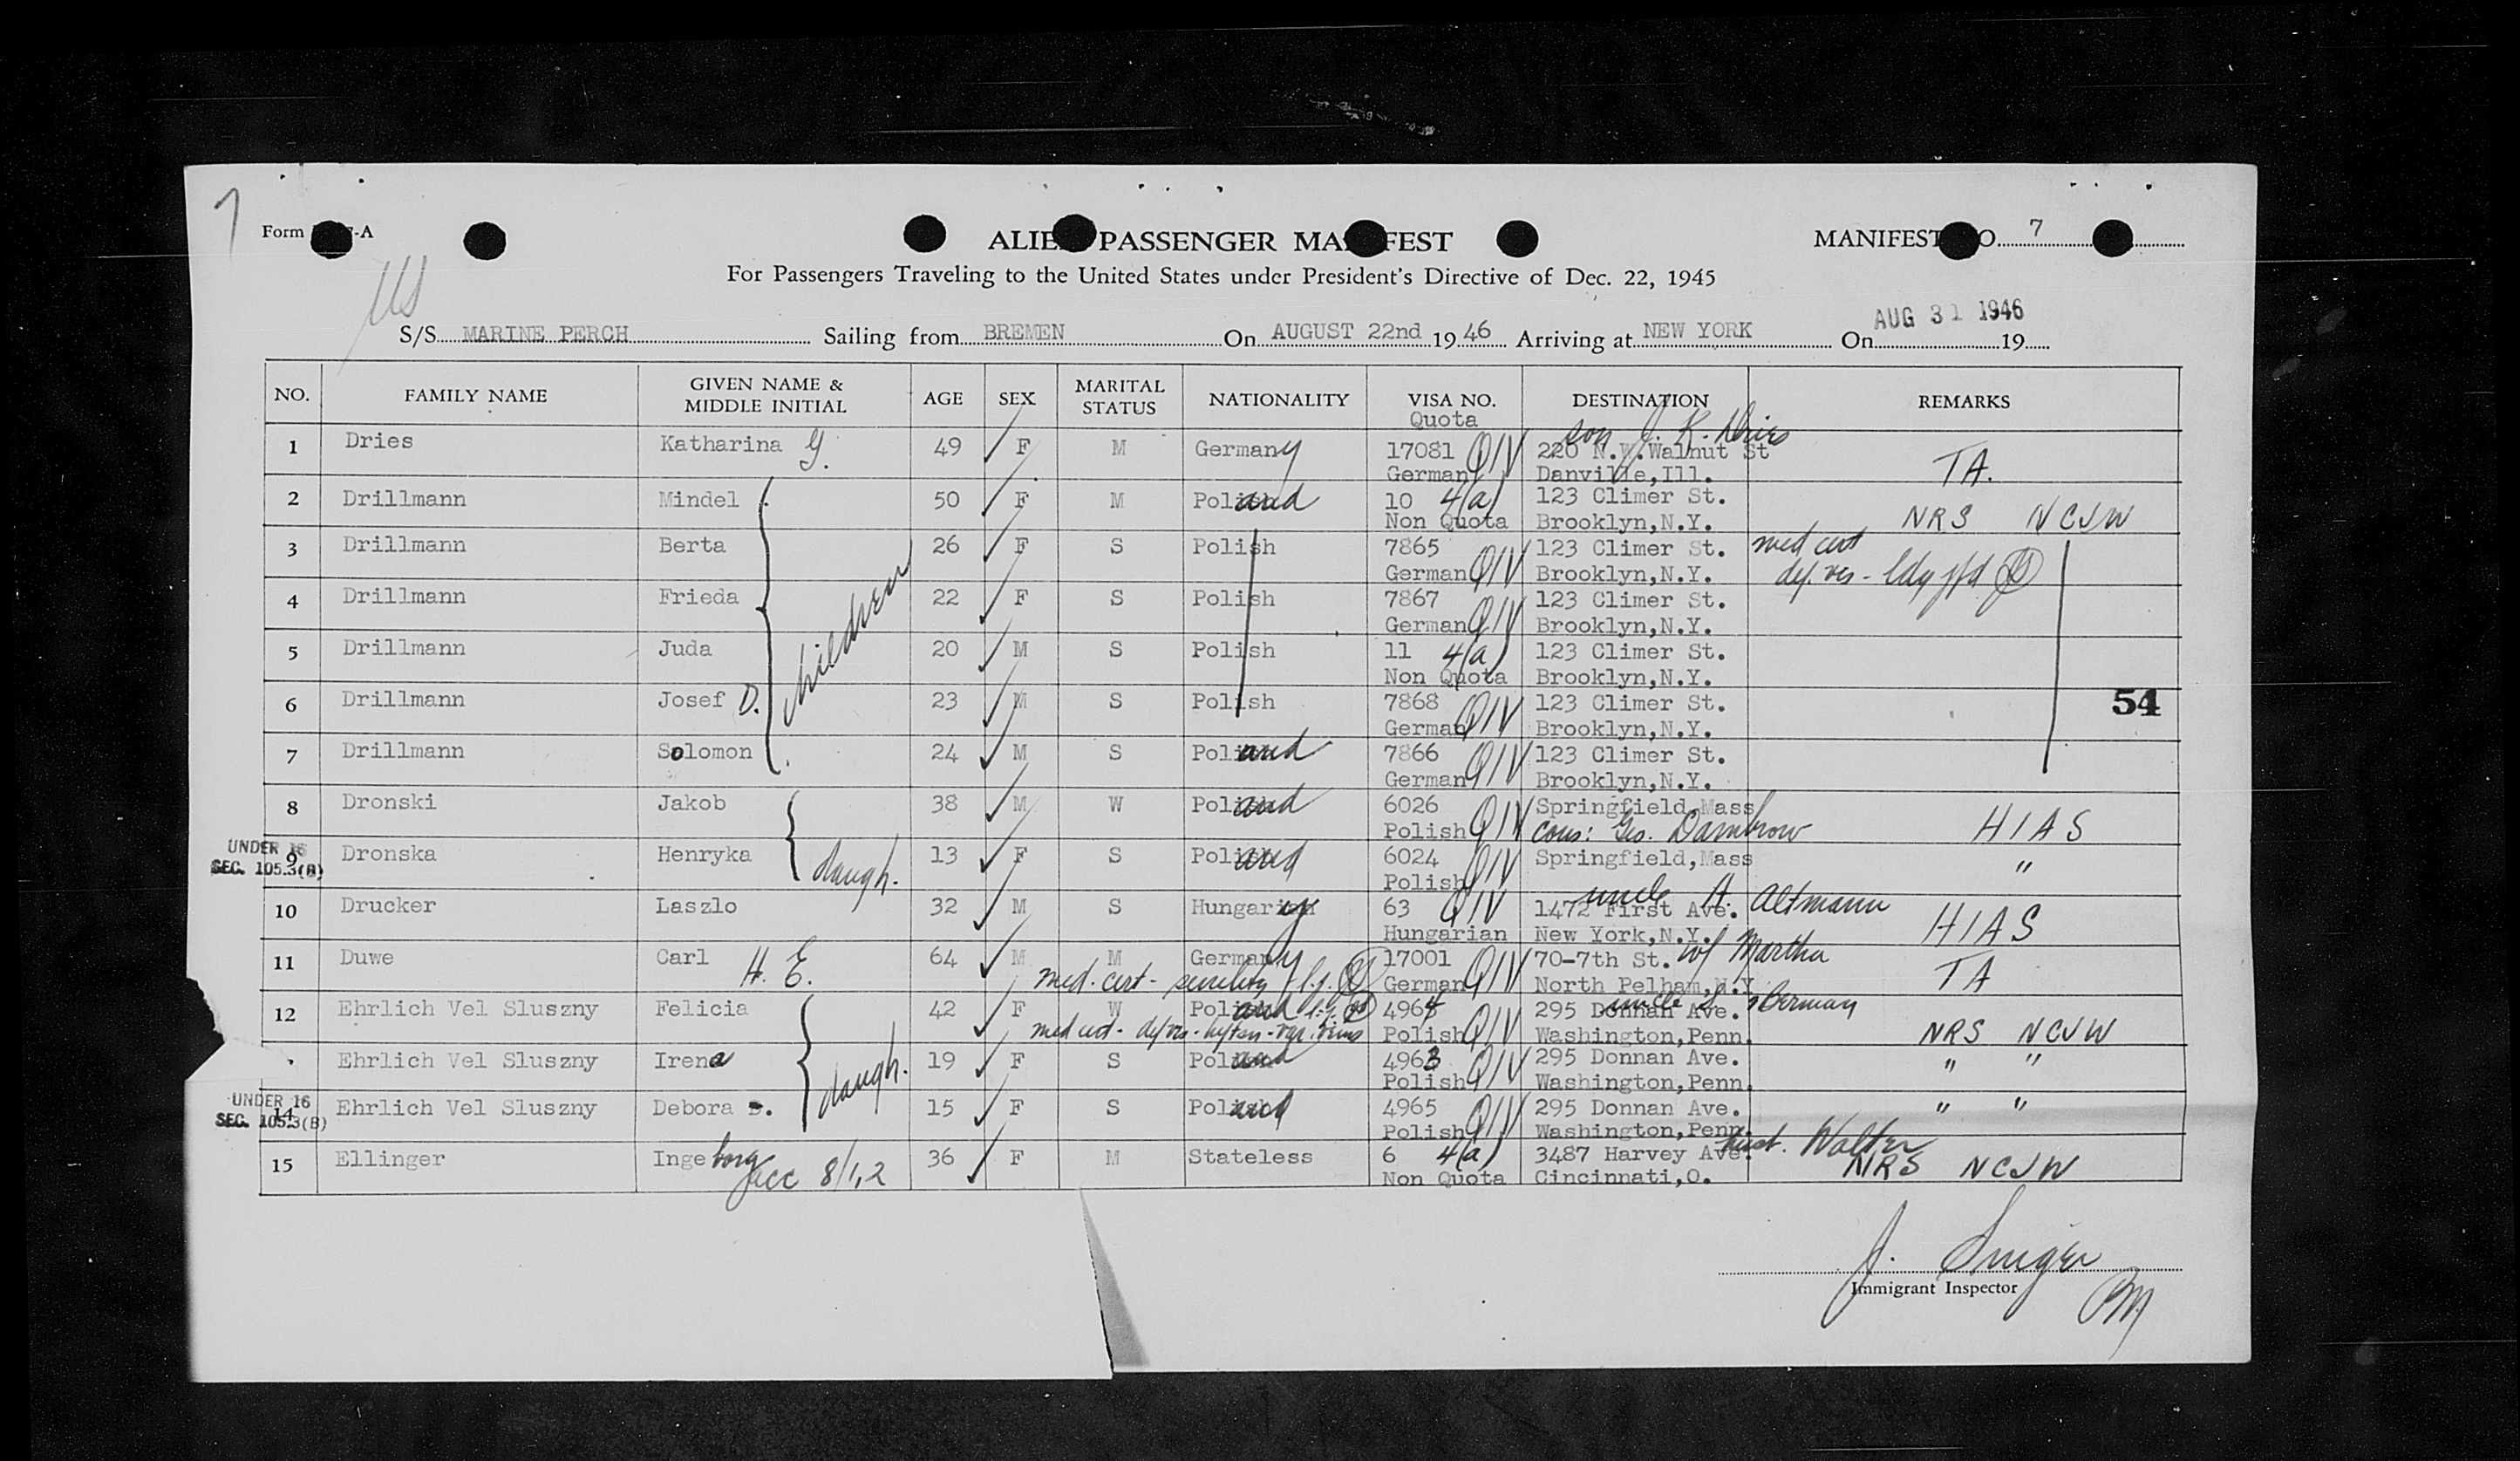 7
Form -A
ALIEN PASSENGER MANIFEST
MANIFEST NO. 7
For Passengers Traveling to the United States under President's Directive of Dec. 22, 1945
AUG 31 1946
S/S MARINE PERCH Sailing from BREMEN On AUGUST 22nd 19 46 Arriving at NEW YORK On 19
NO. FAMILY NAME GIVEN NAME & MIDDLE INITIAL AGE SEX MARITAL STATUS NATIONALITY VISA NO. DESTINATION REMARKS
Quota son J. K. Dries
1 Dries Katharina G. 49 F M Germany 17081 QIV 220 N.W. Walnut St
German Danville, Ill. TA.
2 Drillmann Mindel 50 F M Poland 10 4(a) 123 Climer St.
Non Quota Brooklyn, N.Y. NRS NCJW
3 Drillmann Berta 26 F S Polish 7865 123 Climer St. med cert
German QIV Brooklyn, N.Y. def. vis -
4 Drillmann Frieda children 22 F S Polish 7867 123 Climer St.
German QIV Brooklyn, N.Y.
5 Drillmann Juda 20 M S Polish 11 4(a) 123 Climer St.
Non Quota Brooklyn, N.Y.
6 Drillmann Josef D. 23 M S Polish 7868 123 Climer St. 54
German QIV Brooklyn, N.Y.
7 Drillmann Solomon 24 M S Poland 7866 123 Climer St.
German QIV Brooklyn, N.Y.
8 Dronski Jakob 38 M W Poland 6026 Springfield, Mass
Polish QIV cous: Geo. Dambrow HIAS
UNDER 16
9 Dronska Henryka daugh. 13 F S Poland 6024 Springfield, Mass "
SEC. 105.3(B)
Polish QIV
uncle A. Altmann
10 Drucker Laszlo 32 M S Hungary 63 QIV 1472 First Ave. HIAS
Hungarian New York, N.Y.
11 Duwe Carl H. E. 64 M M Germany 17001 70-7th St. w/ Martha
med. cert - senility German QIV North Pelham, N.Y TA
uncle S. Berman
12 Ehrlich Vel Sluszny Felicia 42 F W Poland 4964 295 Donnan Ave.
med cert - def vis - Polish QIV Washington, Penn. NRS NCJW
Ehrlich Vel Sluszny Irena 19 F S Poland 4963 295 Donnan Ave. " "
daugh. Polish QIV Washington, Penn.
UNDER 16
14 Ehrlich Vel Sluszny Debora 15 F S Poland 4965 295 Donnan Ave. " "
SEC. 105.3(B)
Polish QIV Washington, Penn.
husb. Walter
15 Ellinger Ingeborg 36 F M Stateless 6 4(a) 3487 Harvey Ave. NRS NCJW
acc 8/1,2 Non Quota Cincinnati, O.
Immigrant Inspector